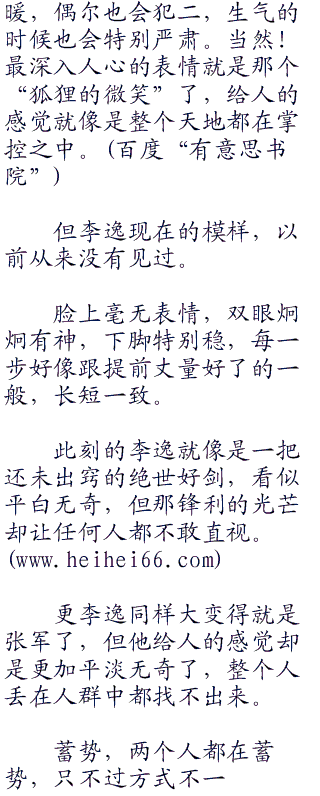 暖，偶尔也会犯二，生气的
时候也会特别严肃。当然！
最深入人心的表情就是那个
“狐狸的微笑”了，给人的
感觉就像是整个天地都在掌
控之中。(百度“有意思书
院”)
但李逸现在的模样，以
前从来没有见过。
脸上毫无表情，双眼炯
炯有神，下脚特别稳，每一
步好像跟提前丈量好了的一
般，长短一致。
此刻的李逸就像是一把
还未出窍的绝世好剑，看似
平白无奇，但那锋利的光芒
却让任何人都不敢直视。
(www.heihei66.com)
更李逸同样大变得就是
张军了，但他给人的感觉却
是更加平淡无奇了，整个人
丢在人群中都找不出来。
蓄势，两个人都在蓄
势，只不过方式不一